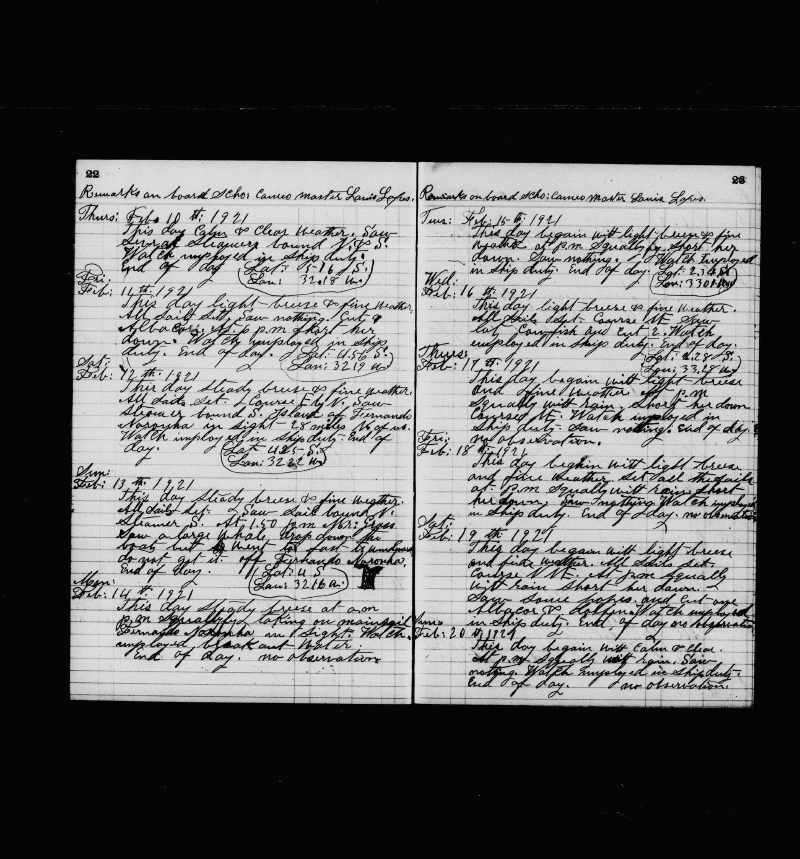 22
Remarks on board Scho: Cameo Master Louis Lopes.
Thurs: Feb. 10 th. 1921
This day Calm & Clear Weather. Saw
Steamers bound N. & S.
Watch imployed in Ship duty.
End of day Lat: 5-16 S.
Lon: 32.18 W.
Fri:
Feb: 11 th. 1921
This day light breese & fine Weather,
All Sails Set. Saw nothing. Cut 8
Albacors. At 6 p.m short her
down. Watch employed in Ship
duty. End of day. Lat: 4.56 S.
Lon: 32 19 W.
Sat:
Feb: 12 th. 1921
This day Steady breese & fine weather.
All Sails Set. Course E by N. Saw
Steamer bound S. Island of Fernando
Noronha in Sight 28 miles N. of us.
Watch imployed in Ship duty. End of
day. Lat: S.
Lon: 32 22 W.
Sun:
Feb: 13 th. 1921
This day Steady breese & fine weather.
All Sails Set. Saw Sail bound N.
Steamer S. At 1.50 p.m Mr:
Saw a large Whale, drop down the
boats but went to fast
do not get it. off Fernando Noronha.
End of day. Lat: 4 S.
Lon: 32 16 W.
Mon:
Feb: 14 th. 1921
This day Steady breese at a.m
p.m Squally taking on mainsail
Fernando Noronha in Sight. Watch
employed break out Water.
End of day. no observation
23
Remarks on board Scho: Cameo Master Louis Lopes.
Tues: Feb: 15 th. 1921
This day began witt light breese & fine
weather at p.m Squally Short her
down. Saw nothing. Watch Employed
in Ship duty. End of day. Lat: 2.34 S.
Lon: 33 01 W.
Wed:
Feb: 16 th. 1921
This day light breese & fine weather.
All Sails Set. Course N.E. Saw
lot Cowfish and Cut 2. Watch
employed in Ship duty. End of day.
Lat: 1.28 S.
Thurs: Lon: 33.28 W.
Feb: 17 th. 1921
This day began witt light breese
and fine Weather at p.m
Squally witt rain, Short her down
Course N.E. Watch imployed in
Ship duty. Saw nothing. End of day.
Fri: no observation.
Feb: 18 th. 1921
This day beghin witt light breese
and fine weather Set all the Sails
at p.m Squally witt rain Short
her down. Saw nothing Watch imployed
in Ship duty. End of day. no observation
Sat:
Feb: 19 th. 1921
This day began witt light breese
and fine weather. All Sails Set.
Course N.N.E. At p.m Squally
witt rain Short her down.
Saw Some and Cut one
Albacor & dolphin Watch imployed
in Ship duty. End of day no observation
Feb: 20 th. 1921
This day began witt Calm & Clear.
At p.m Squally witt rain. Saw
nothing. Watch Employed in Ship duty.
End of day. no observation.